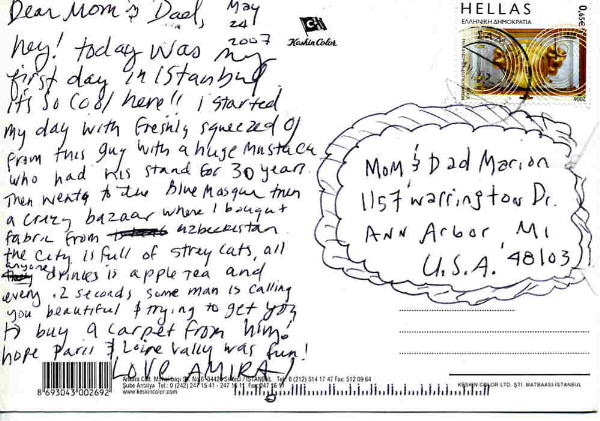 Dear Mom & Dad,
May
24
2007
hey! today was my
first day in Istanbul
its so cool here!! i started
my day with freshly squeezed OJ
from this guy with a huge mustache
who had his stand for 30 years.
Then went to the Blue Mosque then
a crazy bazaar where I bought
fabric from uzbeckistan.
the city is full of strey cats, all
anyone drinks is apple tea and
every .2 seconds some man is calling
you beautiful & trying to get you
to buy a carpet from him!
hope Paris & Loire Vally was fun!
LOVE AMIRA
KeskinColor
HELLAS
ΕΛΛΗΝΙΚΗ ΔΗΜΟΚΡΑΤΙΑ
0,65€
2006
Mom & Dad Marion
1157 Warrington Dr.
Ann Arbor, MI
U.S.A. 48103
8 693043 002692
Ankara Cad. No: 34420 Sirkeci / İSTANBUL Tel: 0 (212) 514 17 47 Fax: 512 09 64
Şube Antalya Tel: 0 (242) 247 15 41 - 247 16 11 Fax: 247 16
www.keskincolor.com
KESKIN COLOR LTD. ŞTİ. MATBAASI-İSTANBUL